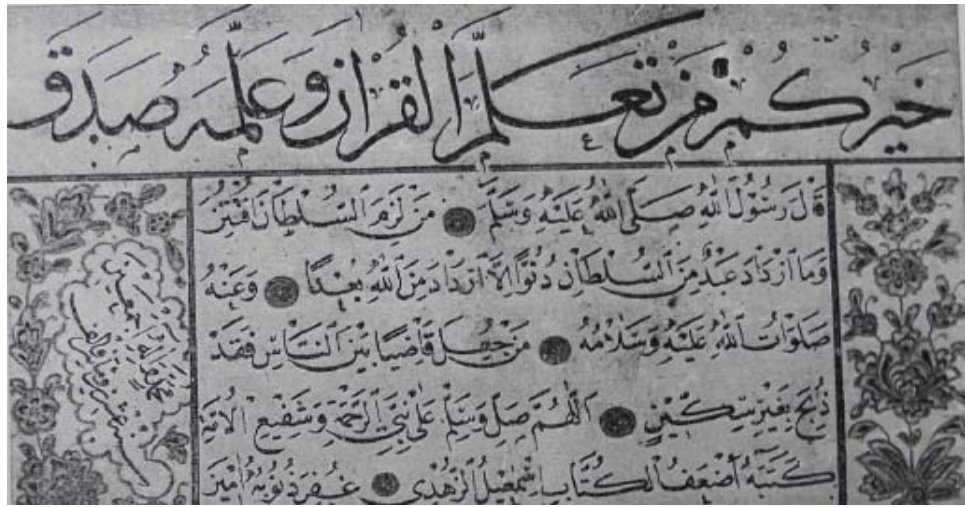 خَيْرُكُمْ مَنْ تَعَلَّمَ الْقُرْاٰنَ وَعَلَّمَهُ صُدِّقَ
قَالَ رَسُولُ اللّٰهِ صَلَّى اللّٰهُ عَلَيْهِ وَسَلَّمَ مَنْ لَزِمَ السُّلْطَانَ اُفْتُتِنَ
وَمَا ازْدَادَ عَبْدٌ مِنَ السُّلْطَانِ دُنُوًّا اِلَّا ازْدَادَ مِنَ اللّٰهِ بُعْدًا وَعَنْهُ
صَلَوَاتُ اللّٰهِ عَلَيْهِ وَسَلَامُهُ مَنْ جُعِلَ قَاضِيًا بَيْنَ النَّاسِ فَقَدْ
ذُبِحَ بِغَيْرِ سِكِّينٍ اَللّٰهُمَّ صَلِّ وَسَلِّمْ عَلٰى نَبِيِّ الرَّحْمَةِ وَشَفِيعِ الْاُمَّةِ
كَتَبَهُ اَضْعَفُ الْكُتَّابِ اِسْمٰعِيلُ الزُّهْدِي غُفِرَ ذُنُوبُهُ اٰمِينَ